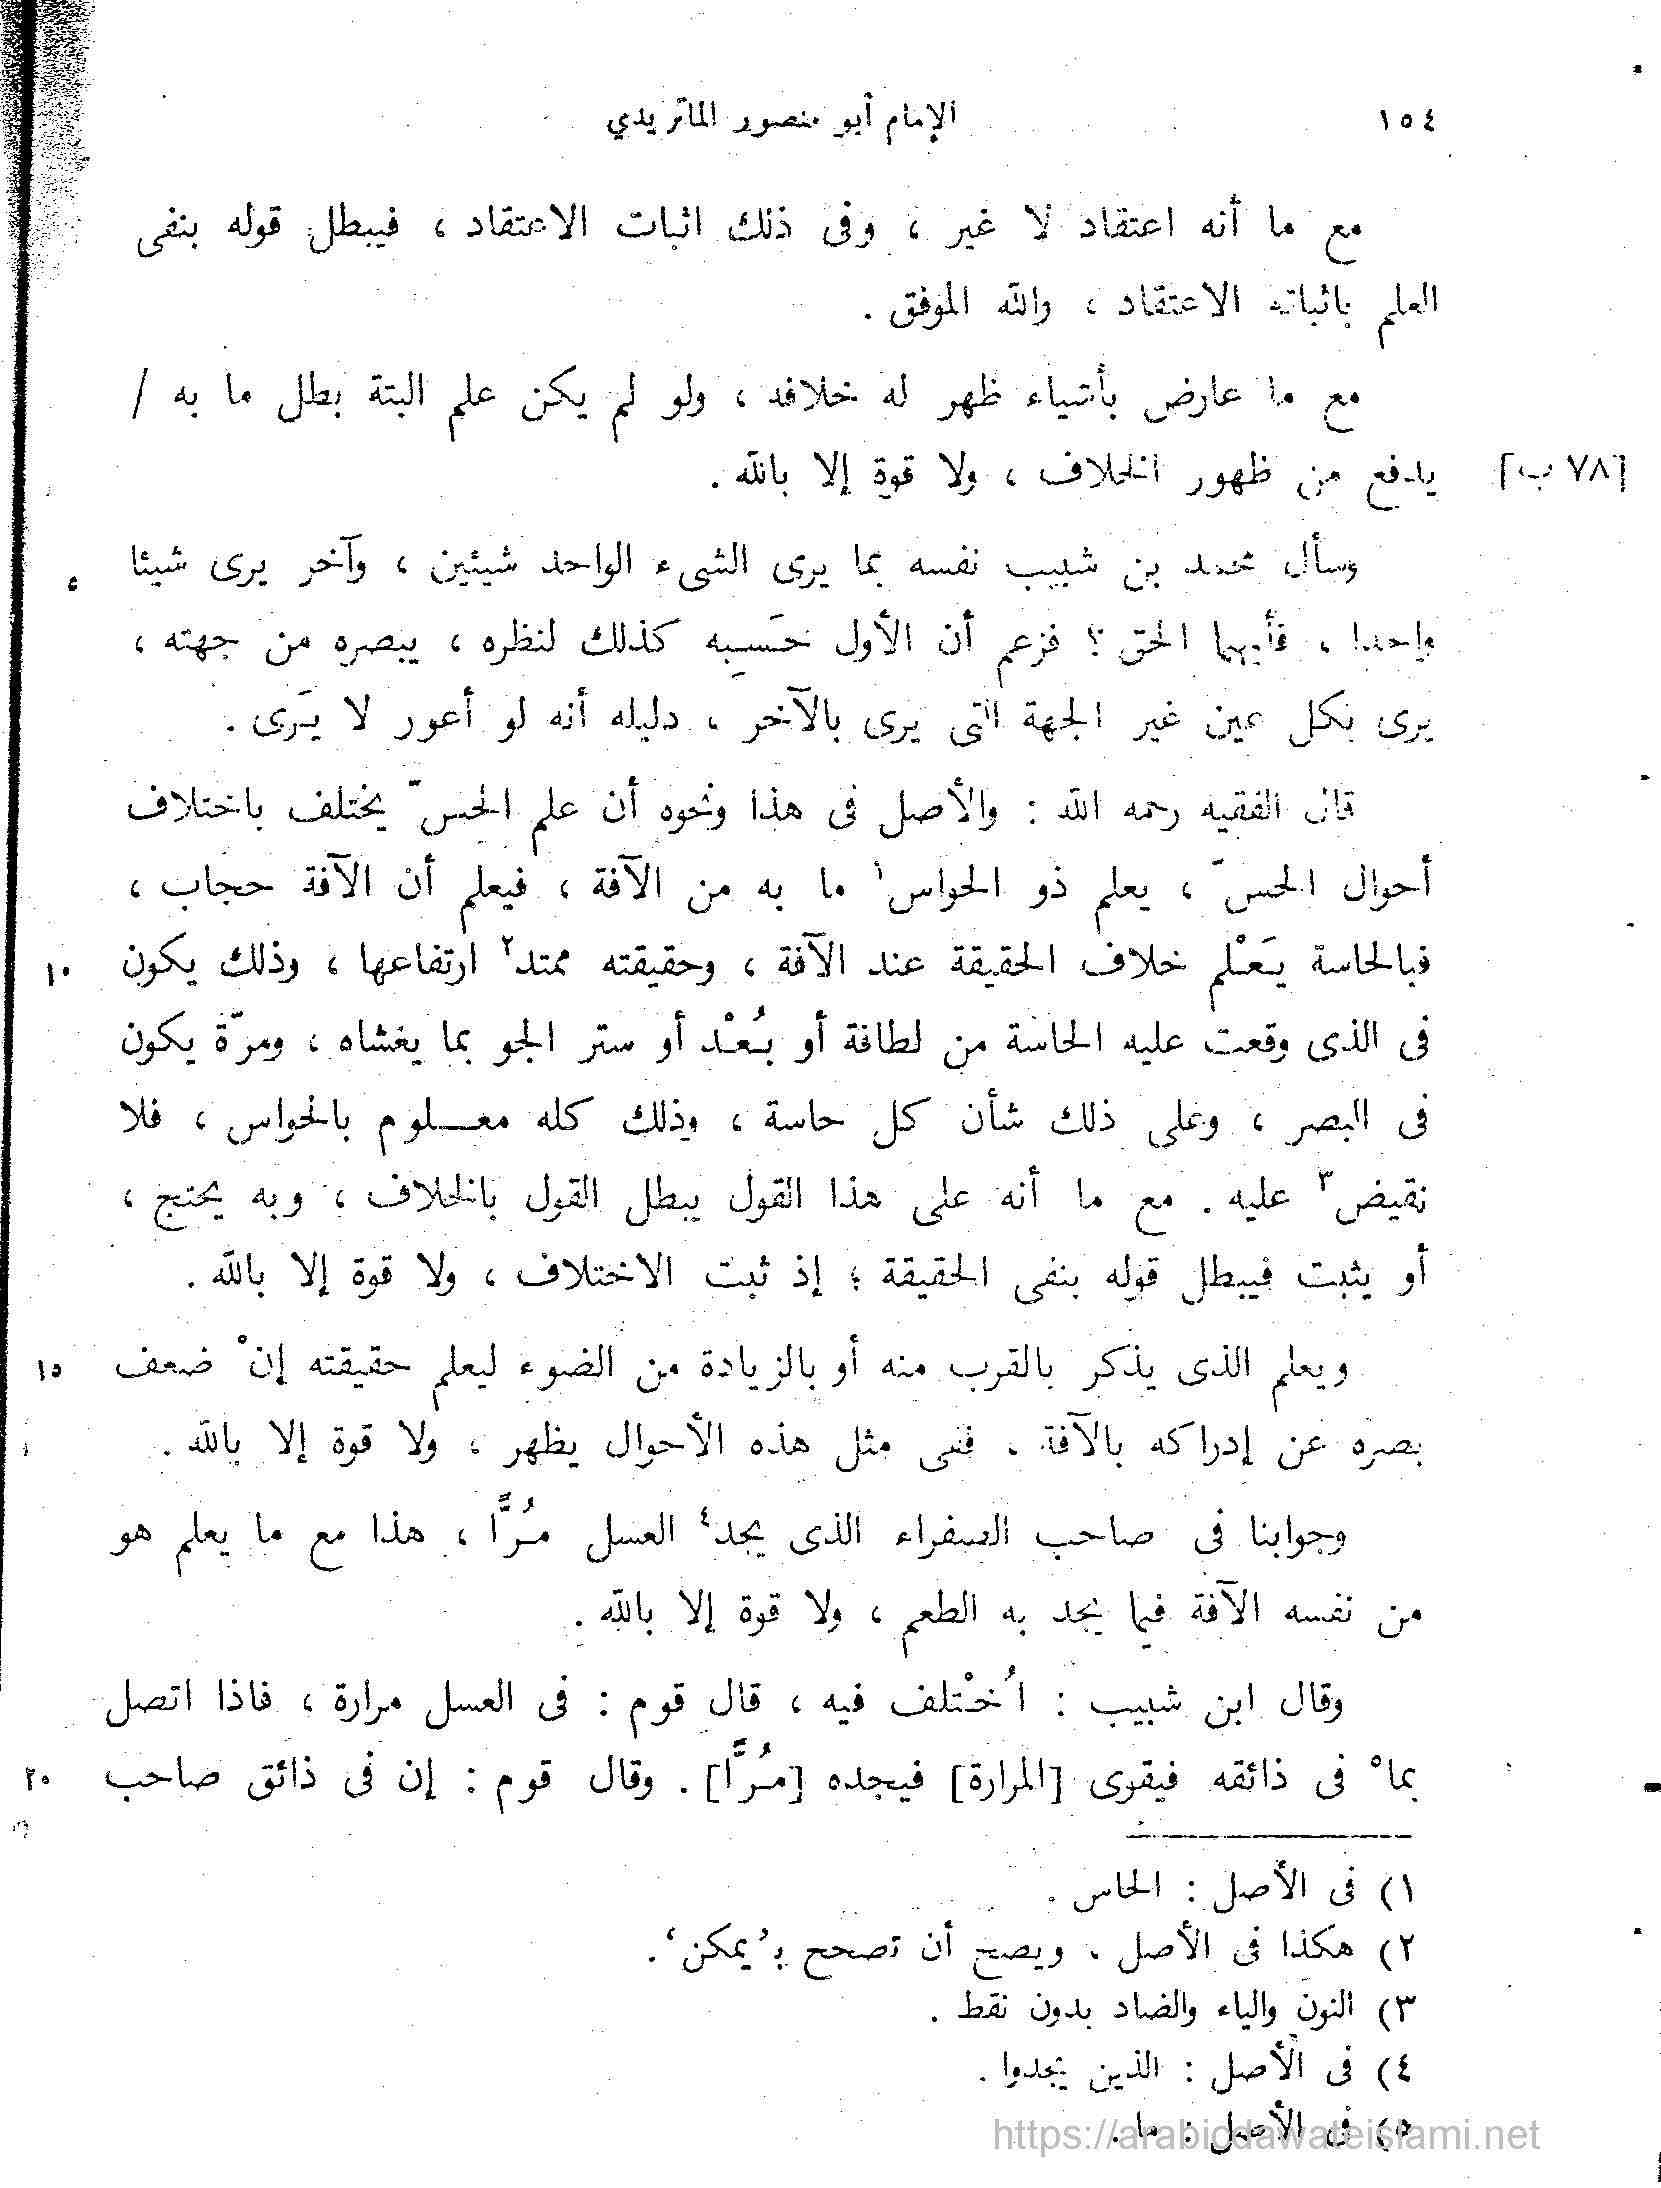 ١٥٤ الإمام أبو منصور الماتريدي
مع ما أنه اعتقاد لا غير ، وفى ذلك اثبات الاعتقاد ، فيبطل قوله بنفى
العلم باثباته الاعتقاد ، والله الموفق .
مع ما عارض بأشياء ظهر له خلافه ، ولو لم يكن علم البتة بطل ما به /
[٧٨ ب] يدفع من ظهور الخلاف ، ولا قوة إلا بالله .
وسأل محمد بن شبيب نفسه بما يرى الشىء الواحد شيئين ، وآخر يرى شيئا
واحدا ، فأيهما الحق ؟ فزعم أن الأول حَسِبه كذلك لنظره ، يبصره من جهته ،
يرى بكل عين غير الجهة التى يرى بالآخر ، دليله أنه لو أعور لا يَرى .
قال الفقيه رحمه الله : والأصل فى هذا ونحوه أن علم الحسّ يختلف باختلاف
أحوال الحسّ ، يعلم ذو الحواس١ ما به من الآفة ، فيعلم أن الآفة حجاب ،
فبالحاسة يَعْلم خلاف الحقيقة عند الآفة ، وحقيقته ممتد٢ ارتفاعها ، وذلك يكون ١٠
فى الذى وقعت عليه الحاسة من لطافة أو بُعْد أو ستر الجو بما يغشاه ، ومرّة يكون
فى البصر ، وعلى ذلك شأن كل حاسة ، وذلك كله معلوم بالحواس ، فلا
نقيض٣ عليه . مع ما أنه على هذا القول يبطل القول بالخلاف ، وبه يحتج ،
أو يثبت فيبطل قوله بنفى الحقيقة ؛ إذ ثبت الاختلاف ، ولا قوة إلا بالله .
ويعلم الذى يذكر بالقرب منه أو بالزيادة من الضوء ليعلم حقيقته إنْ ضعف ١٥
بصره عن إدراكه بالآفة . ففى مثل هذه الأحوال يظهر ، ولا قوة إلا بالله .
وجوابنا فى صاحب الصفراء الذى يجد٤ العسل مُرًّا ، هذا مع ما يعلم هو
من نفسه الآفة فيما يجد به الطعم ، ولا قوة إلا بالله .
وقال ابن شبيب : اُخْتلف فيه ، قال قوم : فى العسل مرارة ، فاذا اتصل
بما٥ فى ذائقه فيقوى [المرارة] فيجده [مُرًّا] . وقال قوم : إن فى ذائق صاحب ٢٠
١) فى الأصل : الحاس .
٢) هكذا فى الأصل ، ويصح أن تصحح بـ’يمكن‘.
٣) النون والياء والضاد بدون نقط .
٤) فى الأصل : الذين يجدوا .
٥) فى الأصل : ما .
https://arabicdawateislami.net